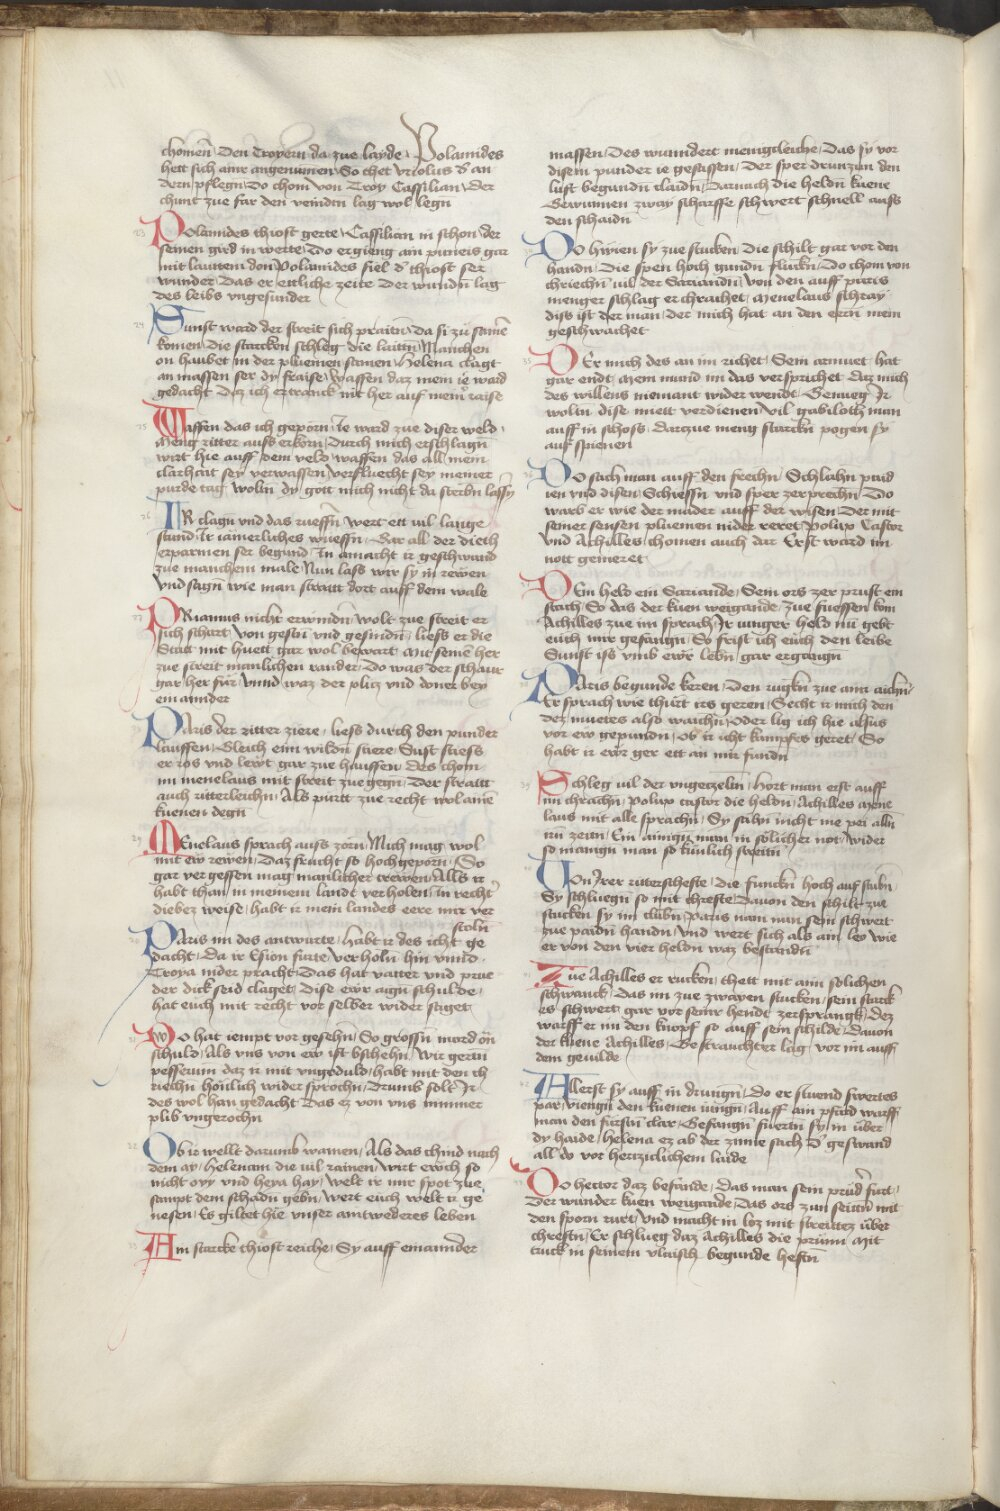 chomen Den Troyern da zue layde Polamides
hett sich amr angenumen So thet Vriolus d͛ an
dern pflegn Do chom von Troy Cassilian Der
chunt zue far den veindtn lag wol legn
23
Polamides thiost gerte Cassilian in schon der
seinen gird in werte Do ergieng am puneis gar
mit lautem don Polamides fiel d͛ thiost ser
wunder Das er ettliche zeite Der wundn̄ lag
des leibs vngesunder
24
Sunst ward der streit sich praitn̄ Da si zu samē
komen die starcken schleg die lautn̄ Manchen
on haubet in der pluemen samen Helena clagt
an massen ser dy fraise Waffen daz mein ie ward
gedacht Daz ich ertranck nit her auf mein͛ raise
25
Waffen das ich geporn Ie ward zue diser weld
Meng ritter auss erkorn Durch mich erschlagn̄
wirt hie auff dem veld waffen das all mein
clarhait sey verwassen Verfluecht sey meiner
purde tag woltn̄ dy gott mich nicht da sterbn̄ lassn̄
26
IR clagn̄ vnd das rueffn̄ Wert ett vil lange
stund Ir iamerliches wueffn̄ Gar all der dieth
erparmen ser begund In amacht ir geschwand
zue manchem male Nun lass wir sy in rewen
Vnd sagn̄ wie man straitt dort auff dem wale
27
PRiamus nicht erwindn̄ wolt zue streit er
sich schart Von gestn̄ vnd gesindn̄ liess er die
Statt mit huett gar wol bewart Mit seinē her
zue streit manlichen rander Do was der schaur
gar her für Vnnd waz der plicz vnd doner bey
einannder
PAris der ritter ziere liess durch den punder
lauffen Gleich eim wildn̄ stiere Sust stiess
er ros vnd lewt gar zue hauffen Des chom
im menelaus mit streit zue gegn̄ Der straitt
auch ritterleichn̄ Als purtt zue recht wol ainē
kuenen degn
29
MEnelaus sprach auss zorn Mich mag wol
mit ew rewen Daz frucht so hochgeporn So
gar vergessen mag manlicher trewen Alls ir
habt than in meinem landt verholen In recht͛
diebez weise habt ir mein landes eere mir ver
stoln̄
30
PAris im des antwurte Habt ir des icht ge
dacht Da ir Esion furte Verholn hin vnnd
Troya nider pracht Das hat vatter vnd prue
der dick seid claget Dise ewr aign̄ schulde
hat euch mit recht vor selber wider saget
31
Wo hat iempt vor gesehn̄ So grossn̄ mord on̄
schuld Als vns von ew ist bschehn̄ Wir gertn̄
pesserum daz ir mit vngeduld habt mit den ch
riechn̄ honlich wider sprochn̄ Drumb solt Ir
des wol han gedacht Das ez von vns nimmer
plib vngerochn
32
Ob ir wellt darumb wainen Als das chind nach
dem ay Helenam die vil rainen Wirt ewch so
nicht oyy vnd heya hay Welt ir mir spot zue
sampt dem schadn̄ gebn̄ Wert euch welt ir ge
nesen Es giltet hie vnser antwederes leben
33
Am starcke thiost reiche Sy auff einannder
massen Des wunndert menigleiche Das sy vor
disem punder ie gesassen Der sper drunzun den
lust begundn̄ claidn̄ Darnach die heldn̄ kuene
Gewunnen zway scharffe schwert schnell auss
den schaidn
DO hiwen sy zue stucken Die schilt gar vor den
handn̄ Die spen hoch gundn̄ fluckn̄ Do chom von
chriechn̄ vil der Sariandn̄ Von den auff paris
menger schlag erchrachet Menelaus schray
diss ist der man Der mich hat an den ern̄ mein
geschwachet
35
DEr mich des an im richet Sein armuet hat
gar endt Mein mund im das versprichet Daz mich
des willens niemant wider wendt Genueg Ir
woltn̄ dise miett verdienen Vil gabiloth man
auff in schoss Darczue meng starckn̄ pogen sy
auf spienen
DO stach man auff den frechn̄ Schlahn̄ paid
ien vnd disen Schiessn̄ vnd sper zerprechn̄ Do
warb er wie der mader auff der wisen Der mit
seiner sensen pluemen nider reret Polux Castor
Vnd Achilles chomen auch dar Erst ward im
nott gemeret
DEm held ein Sariande Sein ors zer prust ein
stach So das der kuen weigande Zue fuessen kom
Achilles zue im sprach Ir iunger held nū gebt
euch mir gefangn̄ So frist ich euch den leibe
Sunst ist vmb ewr lebn̄ gar ergangn̄
PAris begunde keren Den ruckn̄ zue amr aichn̄
Er sprach wie thuirt irs geren Secht ir mich den
dez muetes also waichn̄ Oder lig ich hie alsus
vor ew gepundn̄ Ob ir icht kampfes geret So
habt ir ewr ger ett an mir fundn̄
39
Schleg vil der vngetzeltn̄ Hort man erst auff
im chrachn̄ Polux castor die heldn̄ Achilles mene
laus mit alle sprachn̄ Sy sahn̄ nicht me pei alln̄
irn zeitn̄ Ein ainign̄ man in solicher not Wider
so manign̄ man so kunlich streitn̄
Von Irer ritterschefte Die funckn̄ hoch auf stubn̄
Sy schluegn̄ so mit chrefte Davon den schilt zue
stucken sy im clubn̄ Paris nam nun sein schwert
zue paidn̄ handn̄ Vnd wert sich als ain leo wie
er von den vier heldn̄ waz bestandn̄
41
Zue Achilles er rucken Thett mit aim solichen
schwanck Das im zue zwayen stucken sein starck
es schwert gar vor seinr hendt zersprangk Dez
warff er im den knopf so auff sein schilde Davon
der kuene Achilles Gestrauchter lag vor im auff
dem gevilde
42
Allerst sy auff in drungn̄ Do er stuend swertes
par viengn̄ den kuenen iungn̄ Auff ain pfard warff
man den fursten clar Gefangn̄ fuertn̄ sy in über
dy haide Helena ez ab der zinne sach D͛ geswand
all do vor hertziclichem laide
DO hector daz befande Das man sein prud͛ furt
Der wunder kuen weigande Das ors zun seitn̄ mit
den sporn rurt Vnd macht in loz mit streittez über
chreftn̄ Er schlueg daz Achilles die prunn Mit
truck in seinem vlaisch begunde heftn̄